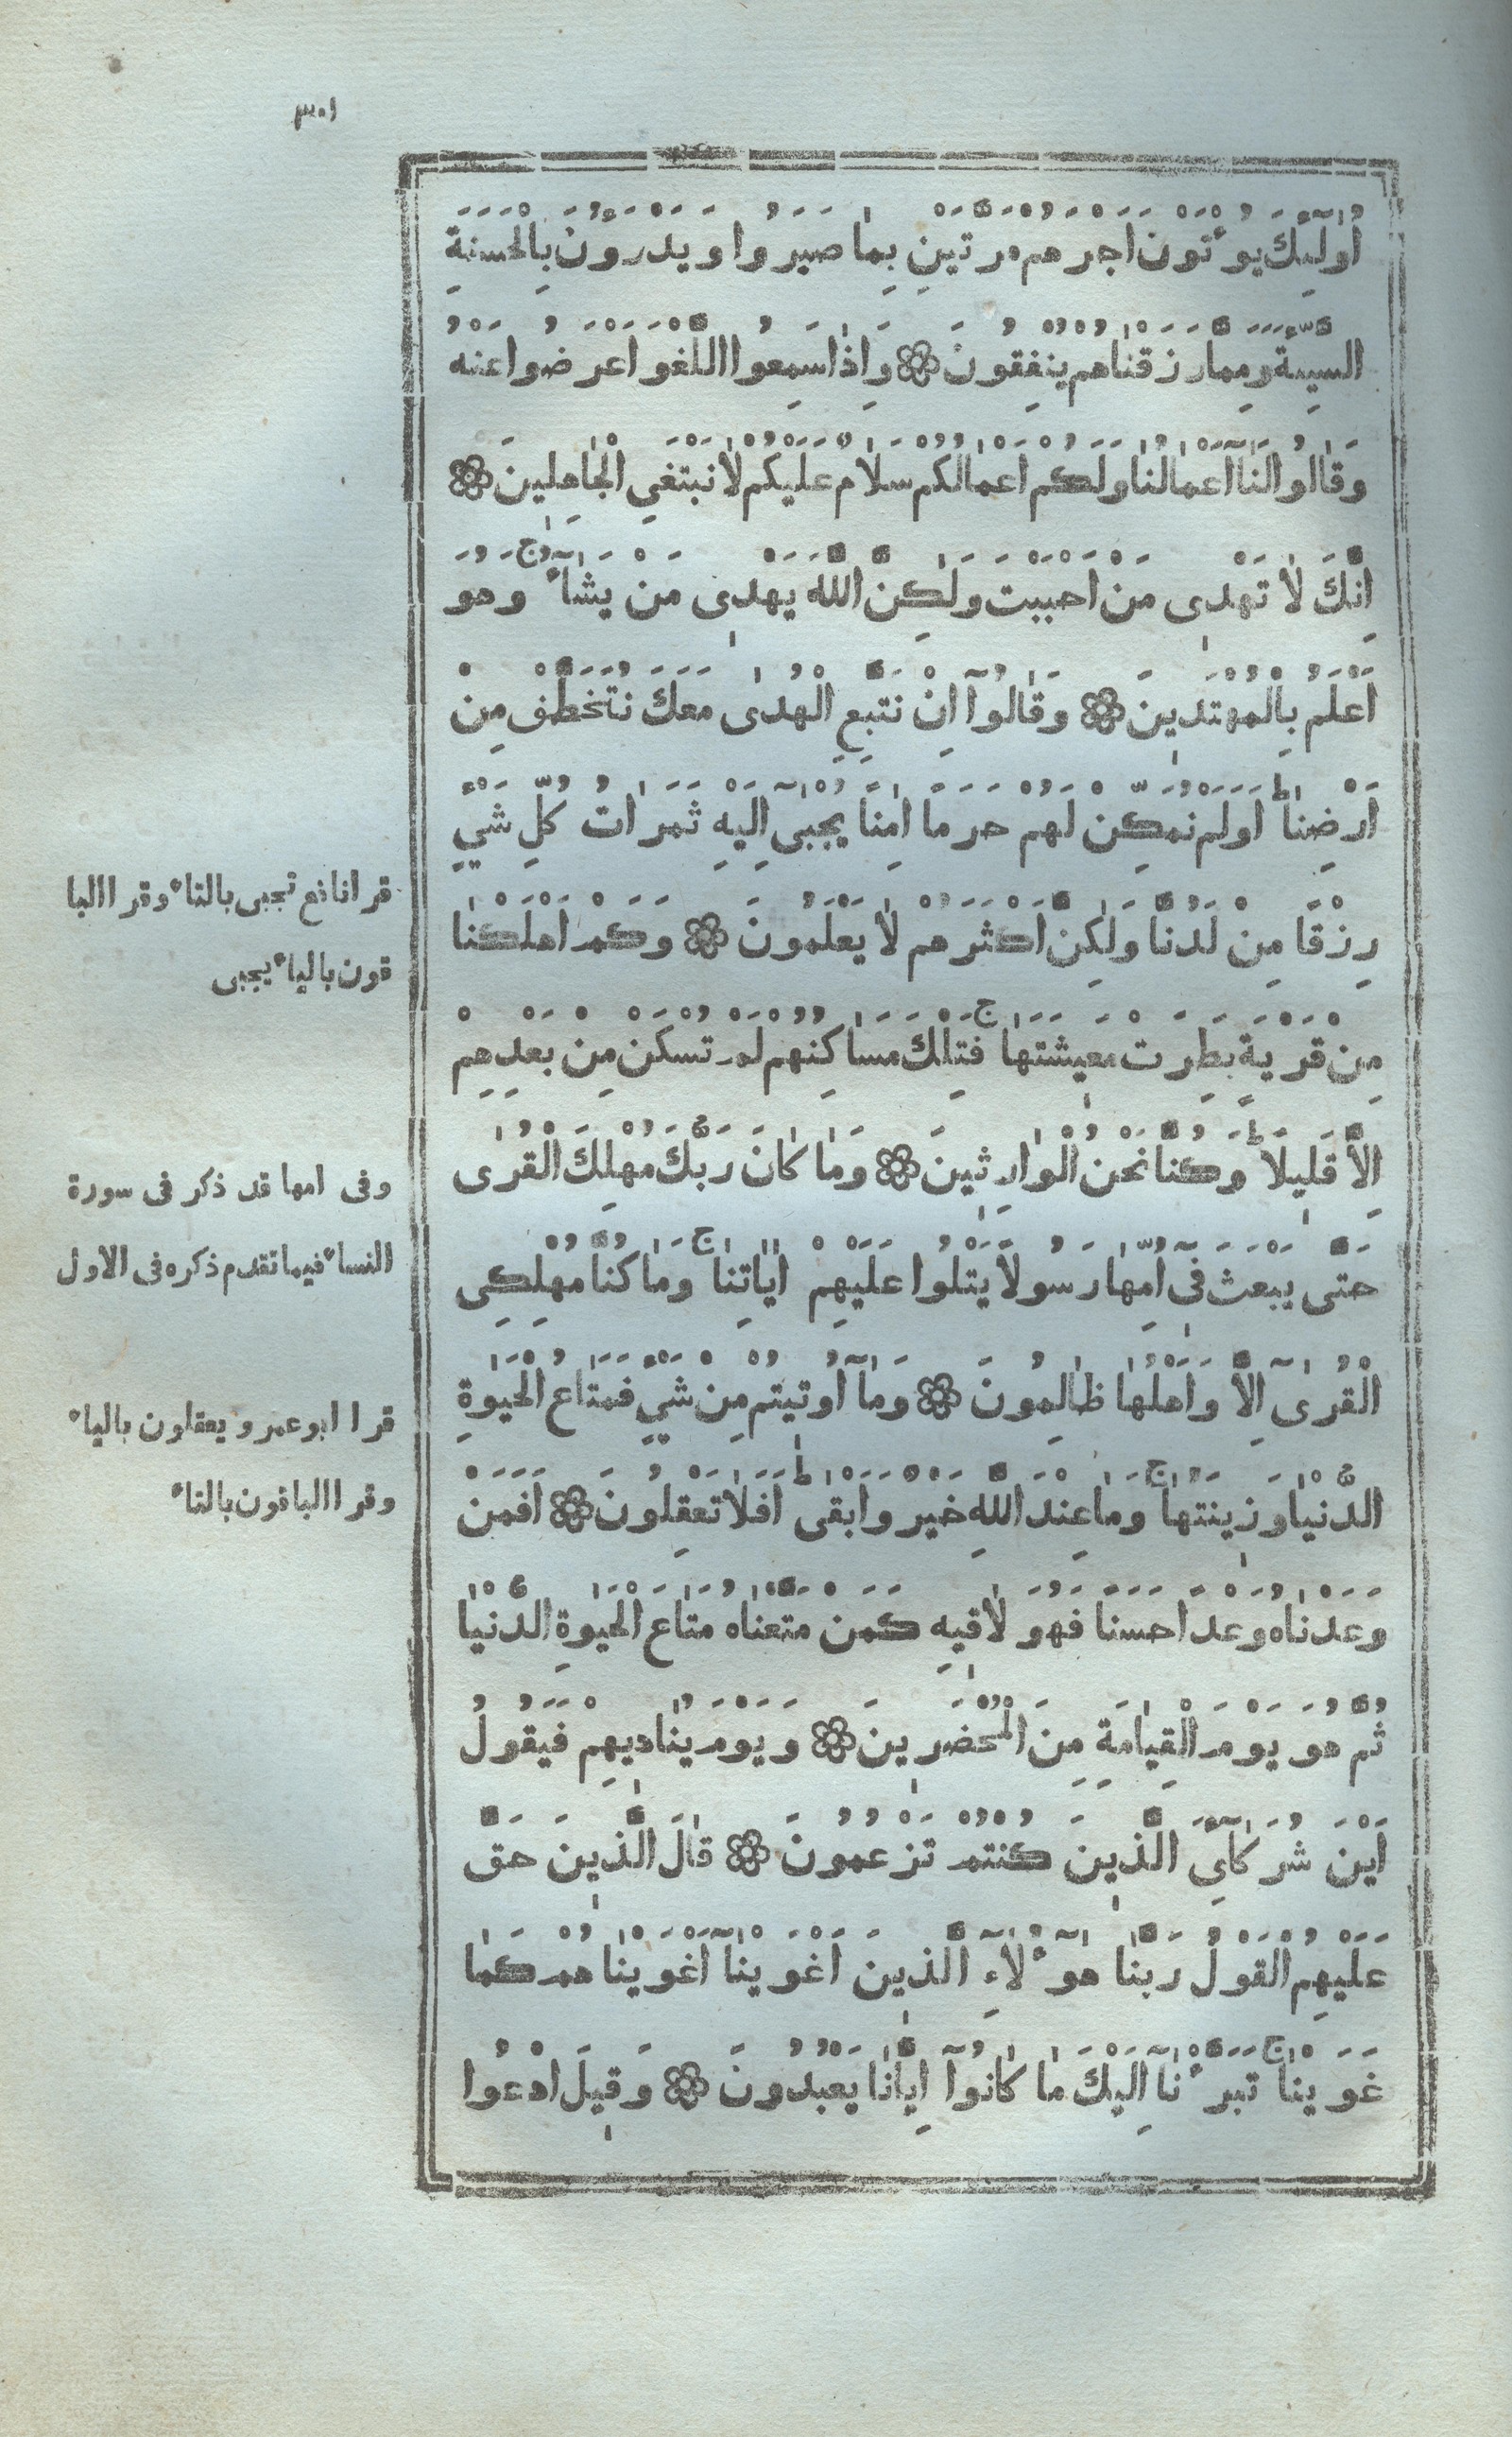 ٣٠١
أُولٰٓئِكَ يُؤْتَوْنَ اَجْرَهُمْ مَرَّتَيْنِ بِمٰا صَبَرُوا وَ يَدْرَؤُنَ بِالْحَسَنَةِ
السَّيِّئَةَ وَمِمَّا رَزَقْنٰاهُمْ يُنْفِقُونَ ۝ وَاِذٰا سَمِعُوا اللَّغْوَ اَعْرَضُوا عَنْهُ
وَقٰالُوا لَنَآ اَعْمٰالُنٰا وَلَكُمْ اَعْمٰالُكُمْ سَلٰامٌ عَلَيْكُمْ لٰا نَبْتَغِي الْجٰاهِلِينَ ۝
اِنَّكَ لٰا تَهْدِى مَنْ اَحْبَبْتَ وَلٰكِنَّ اللَّهَ يَهْدِى مَنْ يَشٰآءُ ۚ وَهُوَ
اَعْلَمُ بِالْمُهْتَدِينَ ۝ وَقٰالُوٓا اِنْ نَتَّبِعِ الْهُدٰى مَعَكَ نُتَخَطَّفْ مِنْ
اَرْضِنٰا ؕ اَوَلَمْ نُمَكِّنْ لَهُمْ حَرَمًا اٰمِنًا يُجْبٰىٓ اِلَيْهِ ثَمَرَاتُ كُلِّ شَيْءٍ
رِزْقًا مِنْ لَدُنَّا وَلٰكِنَّ اَكْثَرَهُمْ لٰا يَعْلَمُونَ ۝ وَكَمْ اَهْلَكْنٰا
قرا نافع تجبى بالتاء وقرا البا
قون بالياء يجبى
مِنْ قَرْيَةٍ بَطِرَتْ مَعِيشَتَهٰا ۚ فَتِلْكَ مَسٰاكِنُهُمْ لَمْ تُسْكَنْ مِنْ بَعْدِهِمْ
اِلَّا قَلِيلًا ؕ وَكُنَّا نَحْنُ الْوٰارِثِينَ ۝ وَمٰا كٰانَ رَبُّكَ مُهْلِكَ الْقُرٰى
حَتَّى يَبْعَثَ فِىٓ اُمِّهٰا رَسُولًا يَتْلُوا عَلَيْهِمْ اٰيٰاتِنٰا ۚ وَمٰا كُنَّا مُهْلِكِى
وفى امها قد ذكر فى سورة
النساء فيما تقدم ذكره فى الاول
الْقُرٰىٓ اِلَّا وَاَهْلُهٰا ظٰالِمُونَ ۝ وَمٰآ اُوتِيتُمْ مِنْ شَيْءٍ فَمَتٰاعُ الْحَيٰوةِ
الدُّنْيٰا وَزِينَتُهٰا ۚ وَمٰا عِنْدَ اللَّهِ خَيْرٌ وَاَبْقٰى ؕ اَفَلٰا تَعْقِلُونَ ۝ اَفَمَنْ
قرا ابو عمرو يعقلون بالياء
وقرا الباقون بالتاء
وَعَدْنٰاهُ وَعْدًا حَسَنًا فَهُوَ لٰاقِيهِ كَمَنْ مَتَّعْنٰاهُ مَتٰاعَ الْحَيٰوةِ الدُّنْيٰا
ثُمَّ هُوَ يَوْمَ الْقِيٰامَةِ مِنَ الْمُحْضَرِينَ ۝ وَ يَوْمَ يُنٰادِيهِمْ فَيَقُولُ
اَيْنَ شُرَكٰآءِىَ الَّذِينَ كُنْتُمْ تَزْعُمُونَ ۝ قٰالَ الَّذِينَ حَقَّ
عَلَيْهِمُ الْقَوْلُ رَبَّنٰا هٰٓؤُلٰآءِ الَّذِينَ اَغْوَيْنٰآ اَغْوَيْنٰاهُمْ كَمٰا
غَوَيْنٰا ۚ تَبَرَّءْنٰآ اِلَيْكَ مٰا كٰانُوٓا اِيَّانٰا يَعْبُدُونَ ۝ وَقِيلَ ادْعُوا